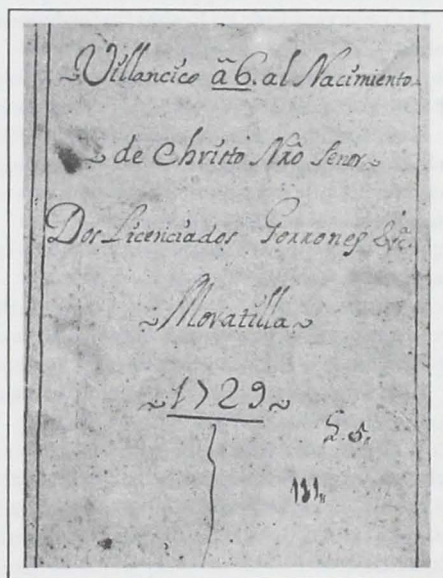 Villancico â 6. al Nacimiento
de Christo Nrō Señor
Dos Licenciados Gorrones &ca.
Moratilla
1729
L. 5.
131